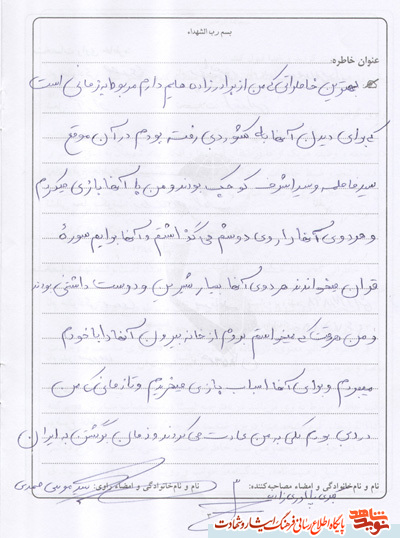 بسم رب الشهداء
عنوان خاطره:
بهترین خاطراتی که من از برادرزاده هایم دارم مربوط به زمانی است
که برای دیدن آنها به کشور دبی رفته بودم در آن موقع
سید محمد و سید اشرف کوچک بودند و من با آنها بازی میکردم
و هر دوی آنها را روی دوشم می گذاشتم و آنها برایم سورهٔ
قرآن میخواندند هر دوی آنها بسیار شیرین و دوست داشتنی بودند
و من هر وقت که میخواستم بروم از خانه بیرون آنها را با خودم
میبردم و برای آنها اسباب بازی میخریدم و تا زمانی که من
در دبی بودم یکی به من عادت می کردند و زمان برگشتن به ایران
نام و نام خانوادگی و امضاء مصاحبه کننده:
نام و نام خانوادگی و امضاء راوی: سید موسی
نوید شاهد
پایگاه اطلاع رسانی فرهنگ ایثار و شهادت